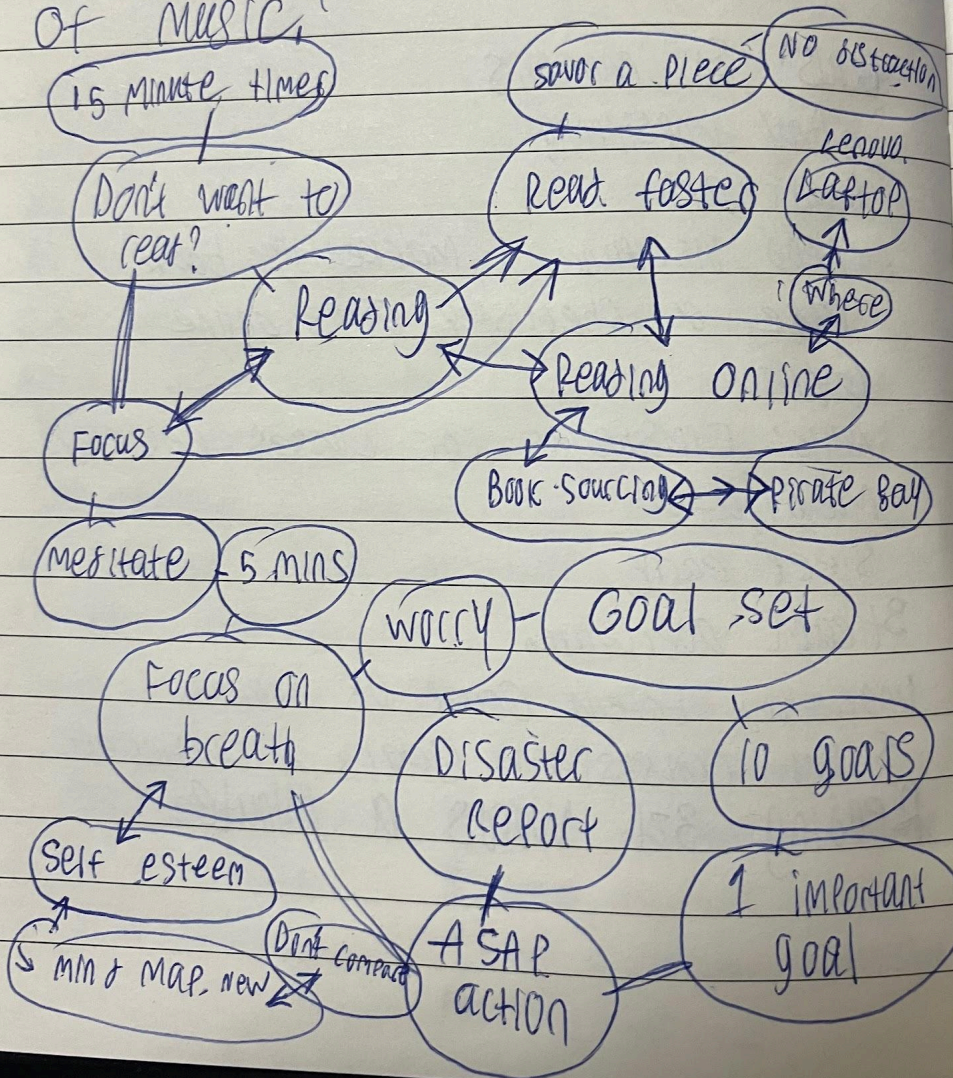 Of Music.
15 minute timer
Savor a piece
No distraction
Don't want to
read?
Read faster
Lenovo
Laptop
Where
Reading
Reading Online
Focus
Book sourcing
Pirate Bay
Meditate
5 mins
Worry
Goal set
Focus on
breath
Disaster
Report
10 goals
Self esteem
1 important
goal
Mind map. new
Don't compare
ASAP
action